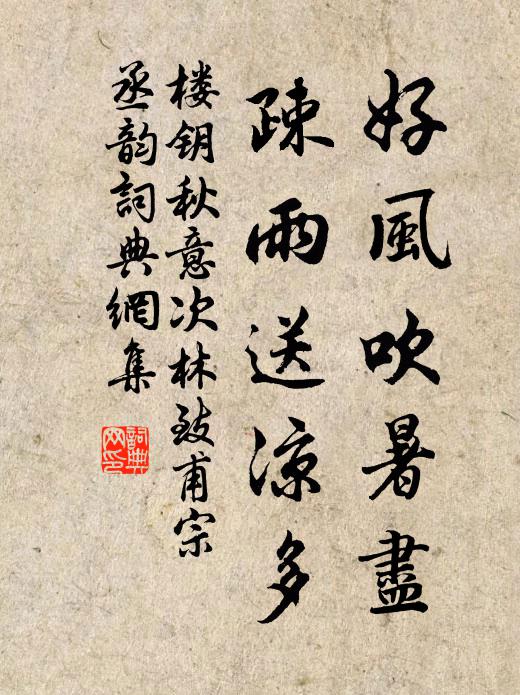 好風吹暑盡
疎雨送涼多
楼钥秋意次林致甫宗
丞韵詞典網集
詞典
网印